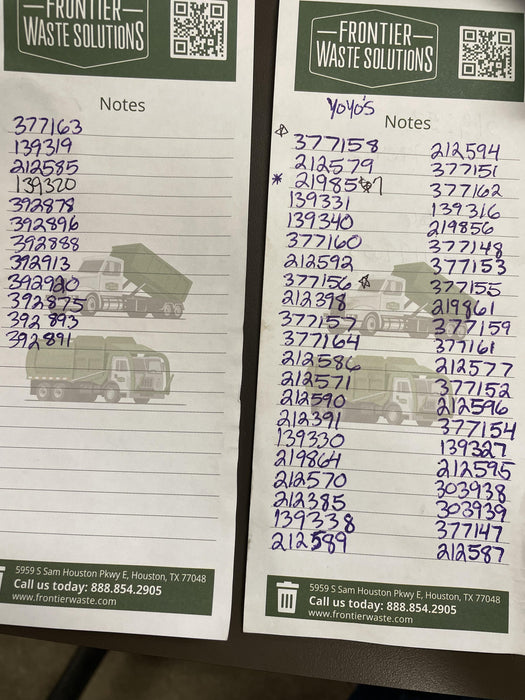 FRONTIER
WASTE SOLUTIONS
Notes
377163
139319
212585
139320
392878
392896
392888
392913
392920
392875
392893
392891
5959 S Sam Houston Pkwy E, Houston, TX 77048
Call us today: 888.854.2905
www.frontierwaste.com
FRONTIER
WASTE SOLUTIONS
YOYO'S
Notes
377158
212579
* 21985
139331
139340
377160
212592
377156
212398
377157
377164
212586
212571
212590
212391
139330
219864
212570
212385
139338
212589
212594
377151
377162
139316
219856
377148
377153
377155
219861
377159
377161
212577
377152
212596
377154
139327
212595
303938
303939
377147
212587
5959 S Sam Houston Pkwy E, Houston, TX 77048
Call us today: 888.854.2905
www.frontierwaste.com